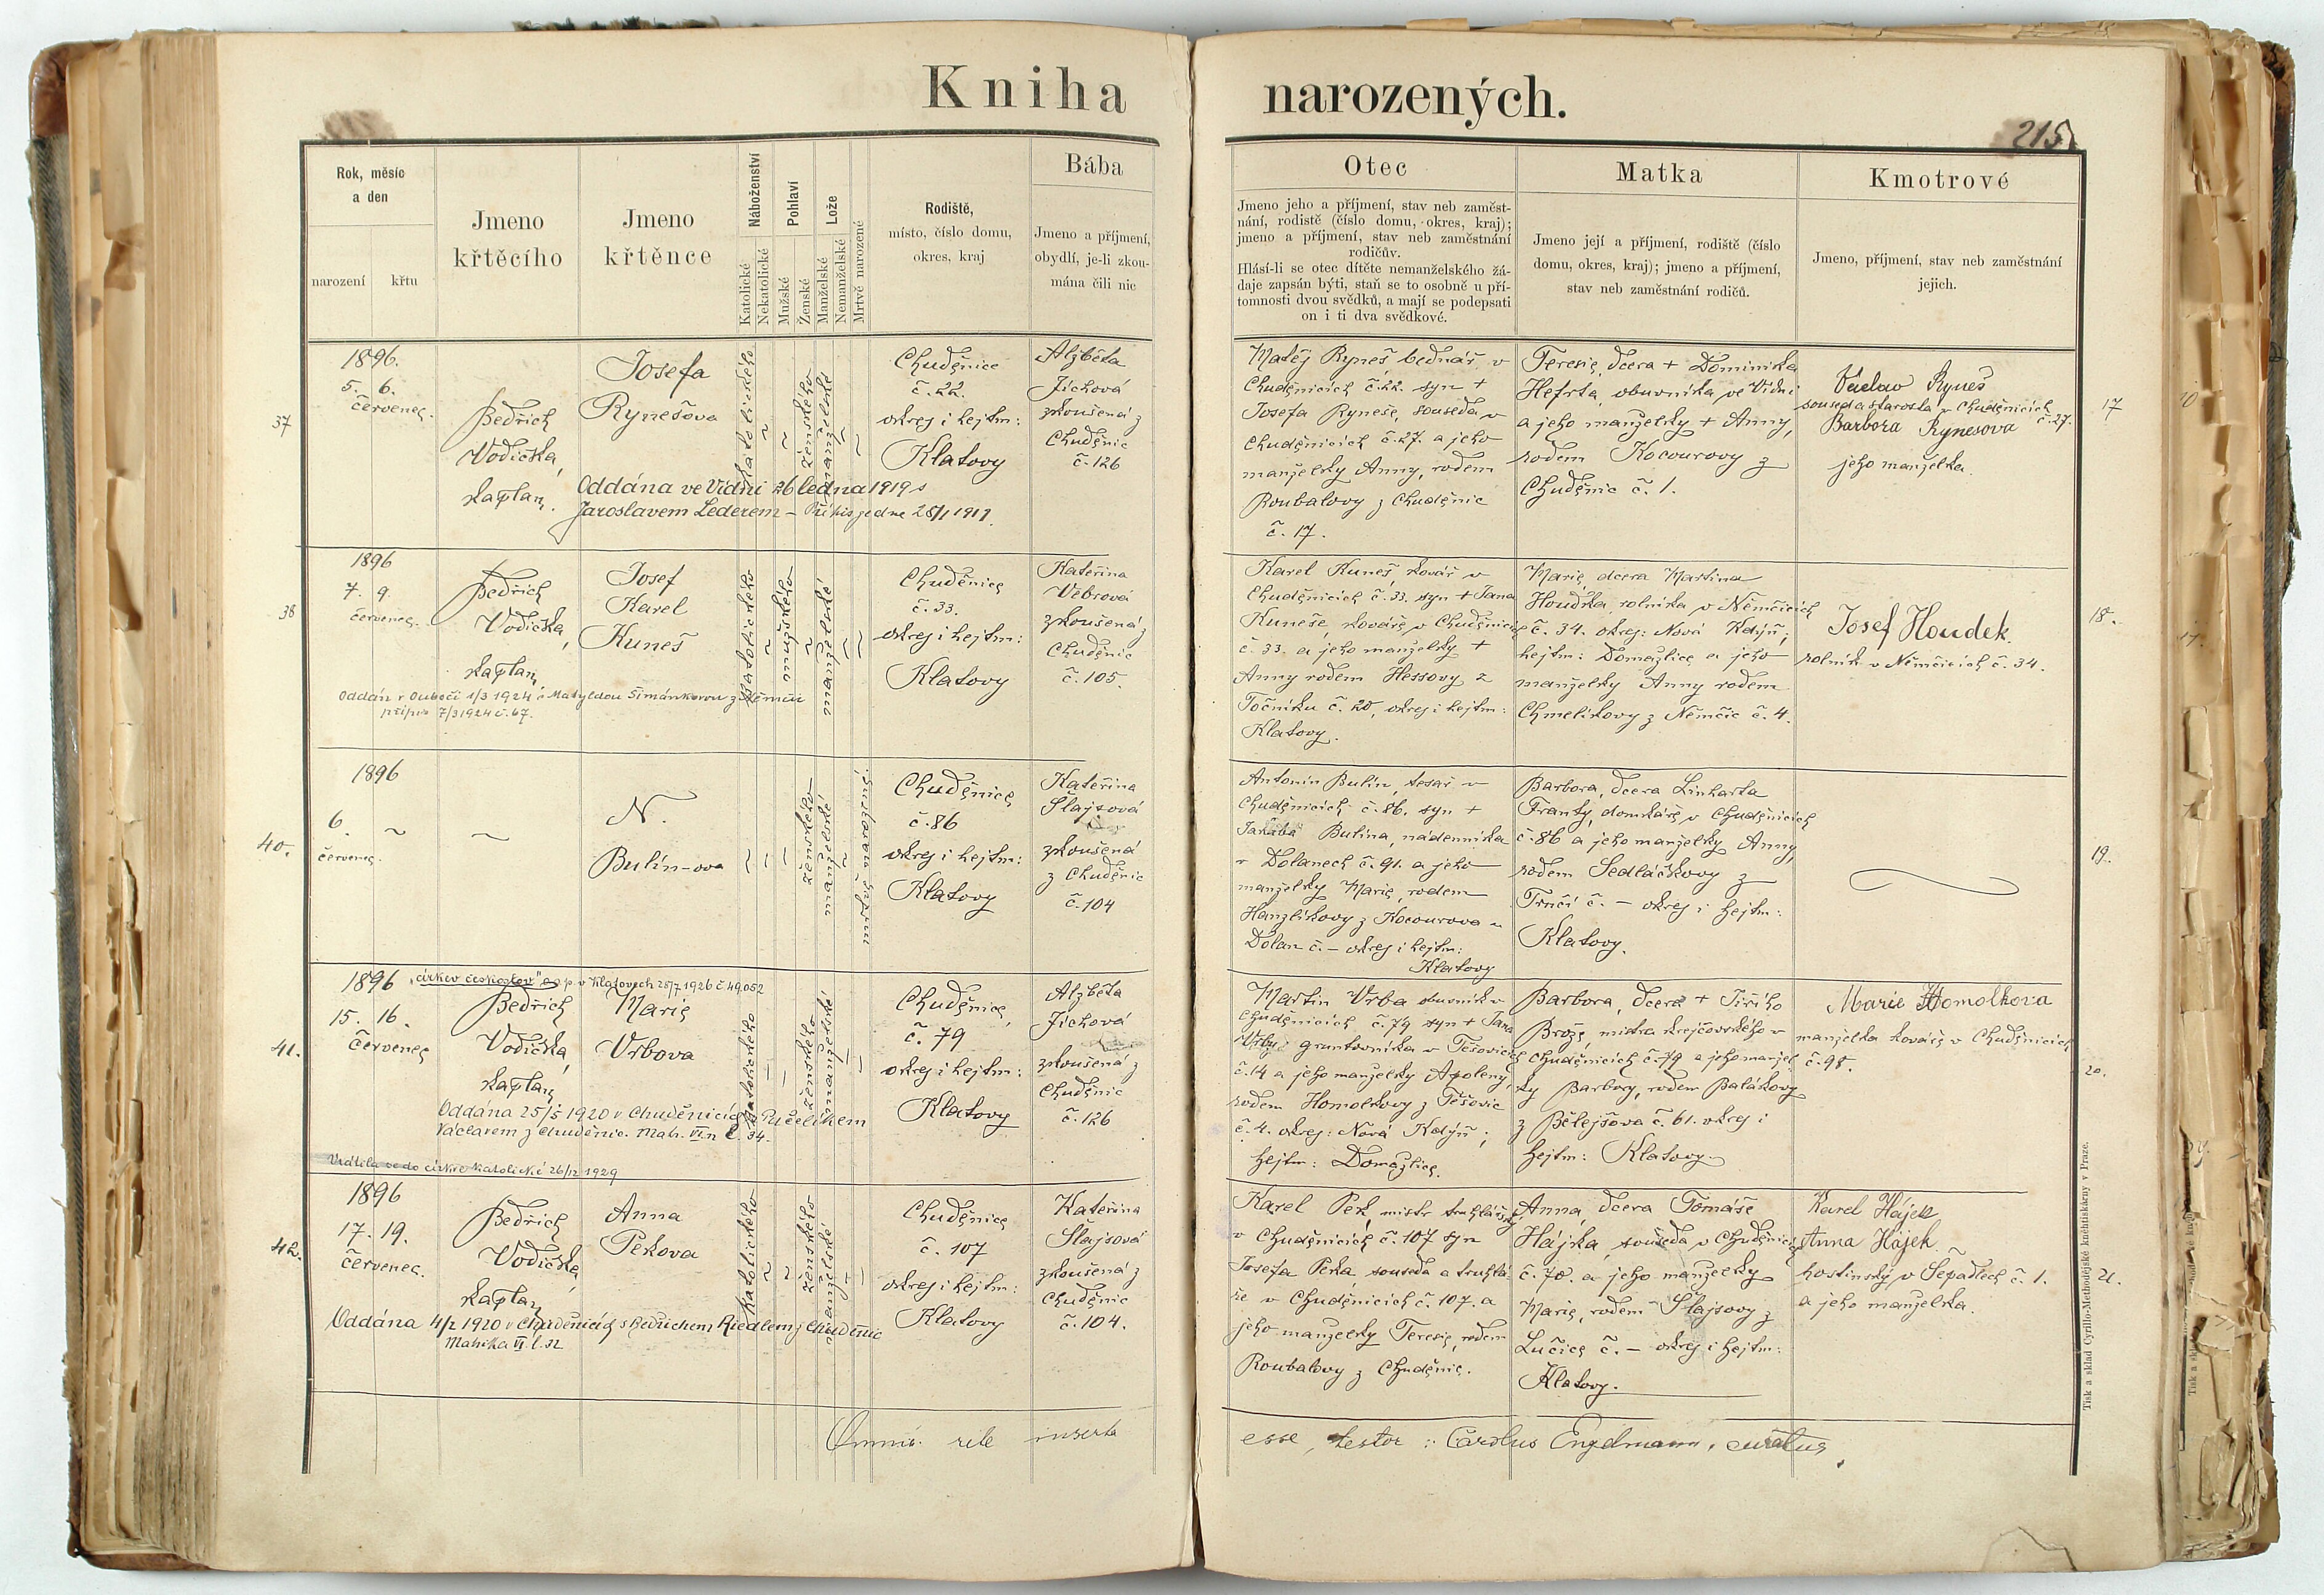 Kniha narozených.
215
Rok, měsíc
a den
narození
křtu
Jmeno
křtěcího
Jmeno
křtěnce
Náboženství
Katolické
Nekatolické
Pohlaví
Mužské
Ženské
Lože
Manželské
Nemanželské
Mrtvě narozené
Rodiště,
místo, číslo domu,
okres, kraj
Bába
Jmeno a příjmení,
obydlí, je-li zkou-
mána čili nic
Otec
Jmeno jeho a příjmení, stav neb zaměst-
nání, rodiště (číslo domu, okres, kraj);
jmeno a příjmení, stav neb zaměstnání
rodičův.
Hlásí-li se otec dítěte nemanželského žá-
daje zapsán býti, staň se to osobně u pří-
tomnosti dvou svědků, a mají se podepsati
on i ti dva svědkové.
Matka
Jmeno její a příjmení, rodiště (číslo
domu, okres, kraj); jmeno a příjmení,
stav neb zaměstnání rodičů.
Kmotrové
Jmeno, příjmení, stav neb zaměstnání
jejich.
37
1896.
5. 6.
červenec.
Bedřich
Vodička,
kaplan.
Josefa
Rynešova
katolického
ženského
manželské
Chuděnice
č. 22.
okres i hejtm:
Klatovy
Alžběta
Jíchová
zkoušená z
Chuděnic
č. 126
Oddána ve Vídni 26 ledna 1919 s
Jaroslavem Lederem – Přípis je dne 28/1 1919.
Matěj Ryneš, bednář v
Chuděnicích č. 22. syn +
Josefa Ryneše, souseda v
Chuděnicích č. 27. a jeho
manželky Anny, rodem
Roubalovy z Chuděnic
č. 17.
Teresie, dcera + Dominika
Hefrta, obuvníka ve Vídni
a jeho manželky + Anny,
rodem Kocourovy z
Chuděnic č. 1.
Václav Ryneš
soused a starosta v Chuděnicích
č. 27.
Barbora Rynesova
jeho manželka.
17
38
1896
7. 9.
červenec.
Bedřich
Vodička,
kaplan,
Josef
Karel
Kuneš
katolického
mužského
manželské
Chuděnice
č. 33.
okres i hejtm:
Klatovy
Kateřina
Vébrová
zkoušená z
Chuděnic
č. 105.
Oddán v Oubočí 1/3 1924 s Matyldou Šimánkovou z Němčic
přípis 7/3 1924 č. 67.
Karel Kuneš, kovář v
Chuděnicích č. 33. syn + Jana
Kuneše, kováře v Chuděnicích
č. 33. a jeho manželky +
Anny rodem Hessovy z
Točníku č. 20, okres i hejtm:
Klatovy.
Marie, dcera Martina
Houdka, rolníka v Němčicích
č. 34. okres: Nová Kdýň;
hejtm: Domažlice a jeho
manželky Anny rodem
Chmelíkovy z Němčic č. 4.
Josef Houdek.
rolník v Němčicích č. 34.
18.
40.
1896
6.
červenec.
N.
Bulín-ova
ženského
manželské
mrtvě narozené.
Chuděnice
č. 86
okres i hejtm:
Klatovy
Kateřina
Šlajsová
zkoušená
z Chuděnic
č. 104
Antonín Bulín, tesař v
Chuděnicích č. 86. syn +
Jakuba Bulína, nádenníka
v Dolanech č. 91. a jeho
manželky Marie, rodem
Hanzlíkovy z Kocourova u
Dolan č. – okres i hejtm:
Klatovy
Barbora, dcera Linharta
Franty, domkáře v Chuděnicích
č. 86 a jeho manželky Anny,
rodem Sedláčkovy z
Trnčí č. – okres i hejtm:
Klatovy.
19.
41.
1896
„církev českoslov“ o. p. v Klatovech 28/7 1926 č 49.052
15. 16.
červenec
Bedřich
Vodička,
kaplan,
Marie
Vrbova
katolického
ženského
manželské
Chuděnice,
č. 79
okres i hejtm:
Klatovy
Alžběta
Jíchová
zkoušená z
Chuděnic
č. 126
Oddána 25/5 1920 v Chuděnicích s Pučelíkem
Václavem z Chuděnic. Matr. VI. n l. 34.
Vrátila se do církve katolické 26/12 1929
Martin Vrba obuvník v
Chuděnicích č. 79 syn + Jana
Vrby gruntovníka v Těšovicích
č. 14 a jeho manželky Apoleny
rodem Homolkovy z Těšovic
č. 4. okres: Nová Kdýň;
hejtm: Domažlice.
Barbora, dcera + Jiřího
Brože, mistra krejčovského v
Chuděnicích č. 79 a jeho manžel-
ky Barbory, rodem Palákovy
z Bělejšova č. 61. okres i
hejtm: Klatovy.
Marie Homolkova
manželka kováře v Chuděnicích
č. 98.
20.
42.
1896
17. 19.
červenec.
Bedřich
Vodička,
kaplan,
Anna
Pekova
katolického
ženského
manželské
Chuděnice
č. 107
okres i hejtm:
Klatovy
Kateřina
Šlajsová
zkoušená z
Chuděnic
č. 104.
Oddána 4/2 1920 v Chuděnicích s Bedřichem Riedlem z Chuděnic
Matrika VI. l. 32
Karel Pek, mistr truhlářský
v Chuděnicích č. 107 syn
Josefa Peka, souseda a truhlá-
ře v Chuděnicích č. 107. a
jeho manželky Teresie, rodem
Roubalovy z Chuděnic.
Anna, dcera Tomáše
Hájka, souseda v Chuděnicích
č. 70. a jeho manželky
Marie, rodem Šlajsovy z
Lučice č. – okres i hejtm:
Klatovy.
Karel Hájek
Anna Hájek.
hostinský v Šepadlech č. 1.
a jeho manželka.
21.
Omnia rite inserta esse, testor: Carolus Engelmann, curatus.
Tisk a sklad Cyrillo-Methodějské knihtiskárny v Praze.